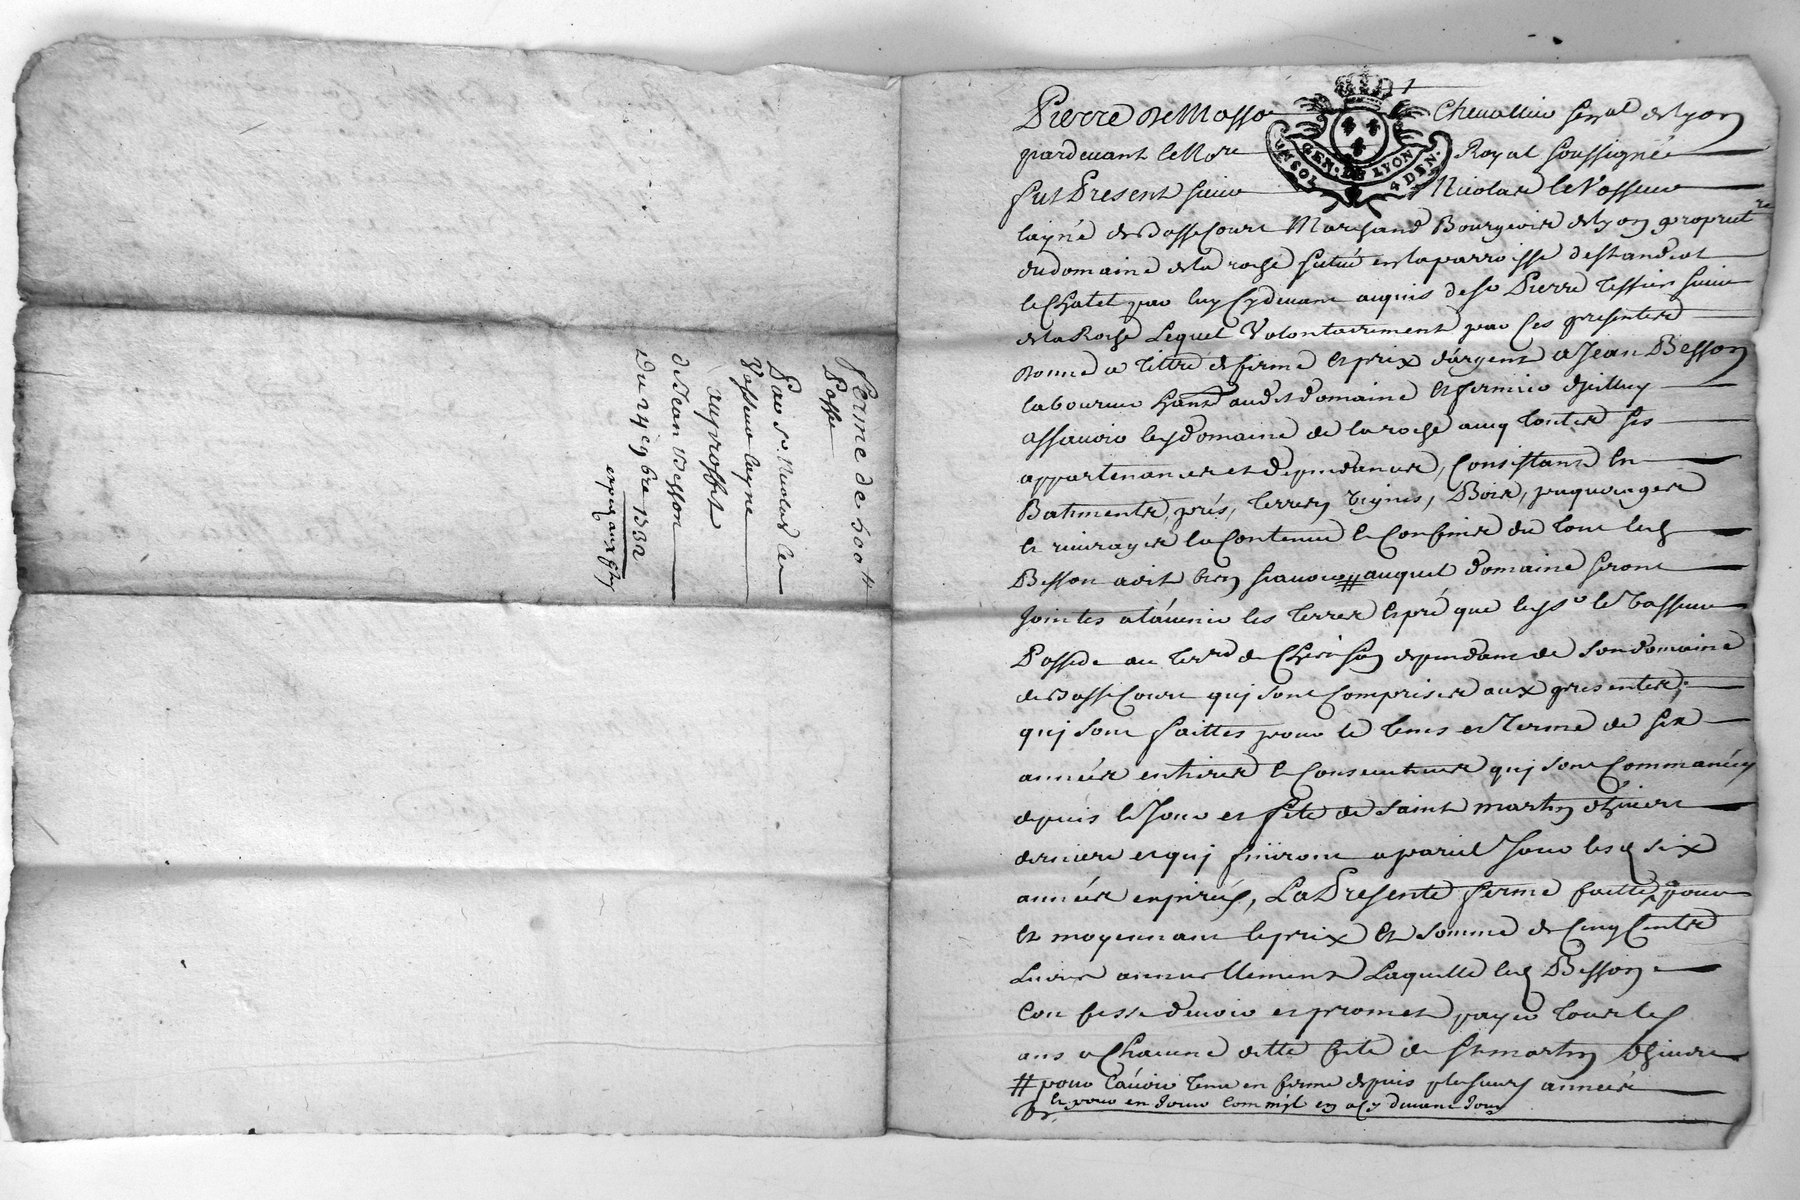 Ferme de 500 ₶
Passée
Par Sr. Nicolas le
Vasseur layné
au proffit
de Jean Besson
Du 14e 9bre 1732
GEN. DE LYON
UN SOL
4 DEN.
1
Pierre De Masso Chevallier Senal de Lyon
pardevant le Nore Royal soussigné
fut Present sieur Nicolas le Vasseur
layné de Basse Court Marchand Bourgeois de lyon propriet
re
du domaine de la roche situé en la parroisse de st andeol
le Chatel par luy cydevant acquis de sr Pierre Tessier sieur
de la Roche Lequel Volontairement par Ces presentes
donne a tittre de ferme et prix d'argent a Jean Besson
laboureur audit domaine et fermier d'iceluy
assavoir led domaine de la roche avec toutes ses
appartenances et dependances, Consistant En
Batiments, prés, terres, vignes, Bois, paquerages
et la Contenue et Confins du tout led
Besson a dit bien scavoir ⧧ auquel domaine seront
Jointes a l'avenir les terres et pré que led sr le Vasseur
Possede au terre de dependant de son domaine
de Basse Court qui sont Comprises aux presentes;
qui sont faittes pour le tems et terme de six
années entieres et Consecutives qui sont Commancées
depuis le Jour et fete de saint martin d'hivert
derniere et qui finiront a pareil Jour lesd six
années expirées, La Presente ferme faitte pour
et moyennant le prix et somme de Cinq Cents
Livres annuellement Laquelle led Besson
Confesse devoir et promet payer tous les
ans a Chacune ditte fete de st martin d'hivert
⧧ pour l'avoir tenu en ferme depuis plusieurs années
et pour en Jouir Comme il en a cy devant Jouy